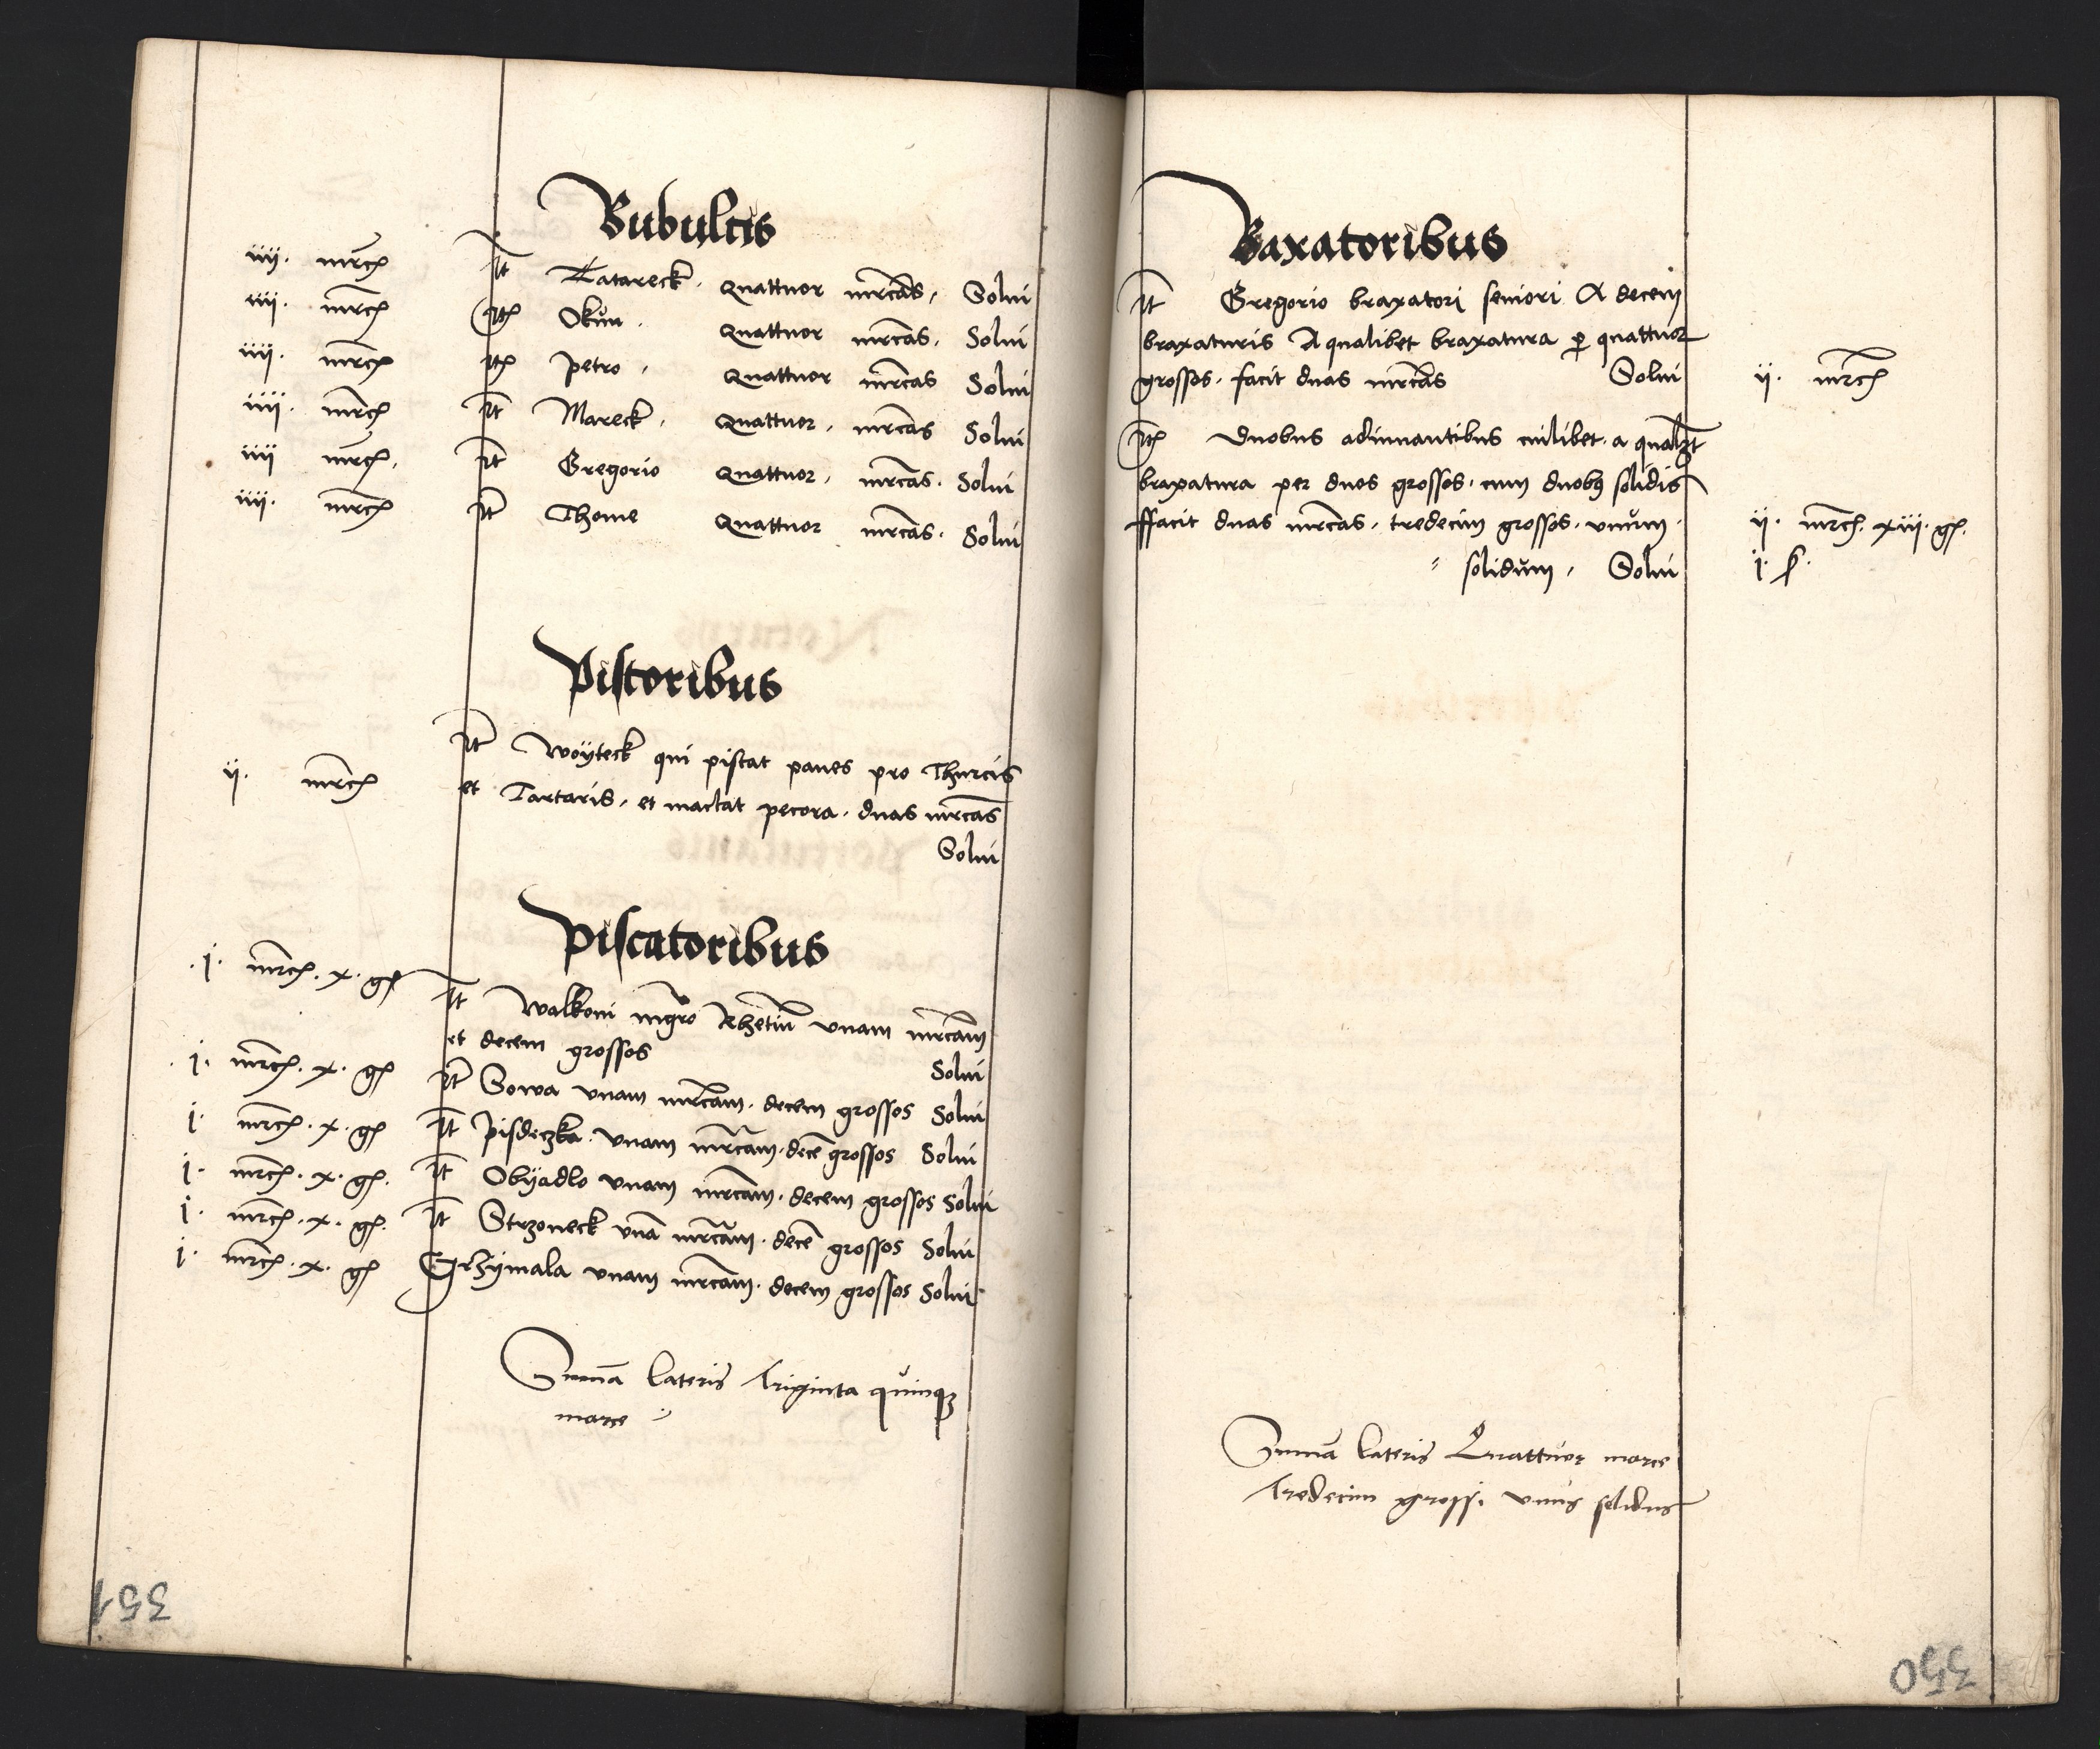 Bubulcis
iiij. mrcz It Katareck. Quattuor mrcas. Solui
iiij. mrcz Itz Okun. Quattuor mrcas. Solui
iiij. mrcz Itz Petro. Quattuor mrcas Solui
iiij. mrcz It Mareck. Quattuor. mrcas Solui
iiij mrcz. It Gregorio Quattuor. mrcas. Solui
iiij. mrcz It Thome Quattuor mrcas. Solui
Pistoribus
It Woÿteck qui pistat panes pro Thurcis
ij. mrcz et Tartaris. et mactat pecora. duas mrcas
Solui
Piscatoribus
.j. mrcz. x. gz It Walkoni mgro Rhetiu unam mrcam
et decem grossos Solui
.j. mrcz. x. gz It Sowa unam mrcam. decem grossos Solui
j. mrcz. x. gz It Pisdeczka. unam mrcam. dece grossos Solui
j. mrcz. x. gz. It Obÿadlo unam mrcam. decem grossos Solui
j. mrcz. x. gz. It Strzoneck una mrcam. dece grossos Solui
j. mrcz. x. gz Grzÿmala unam mrcam. decem grossos Solui
Suma lateris Triginta quinqz
marce
351
Baxatoribus
It Gregorio braxatori seniori A decem
braxaturis A qualibet braxatura p quattuor
grossos. facit duas mrcas Solui ij. mrcz
Itz Duobus adiuuantibus cuilibet. a qualzt
braxatura per duos grossos. cum duobz solidis
ffacit duas mrcas. tredecim grossos. unum. ij. mrcz. xiij. gz.
solidum. Solui j. s.
Suma lateris Quattuor marce
Tredecim grossi unus solidus
350